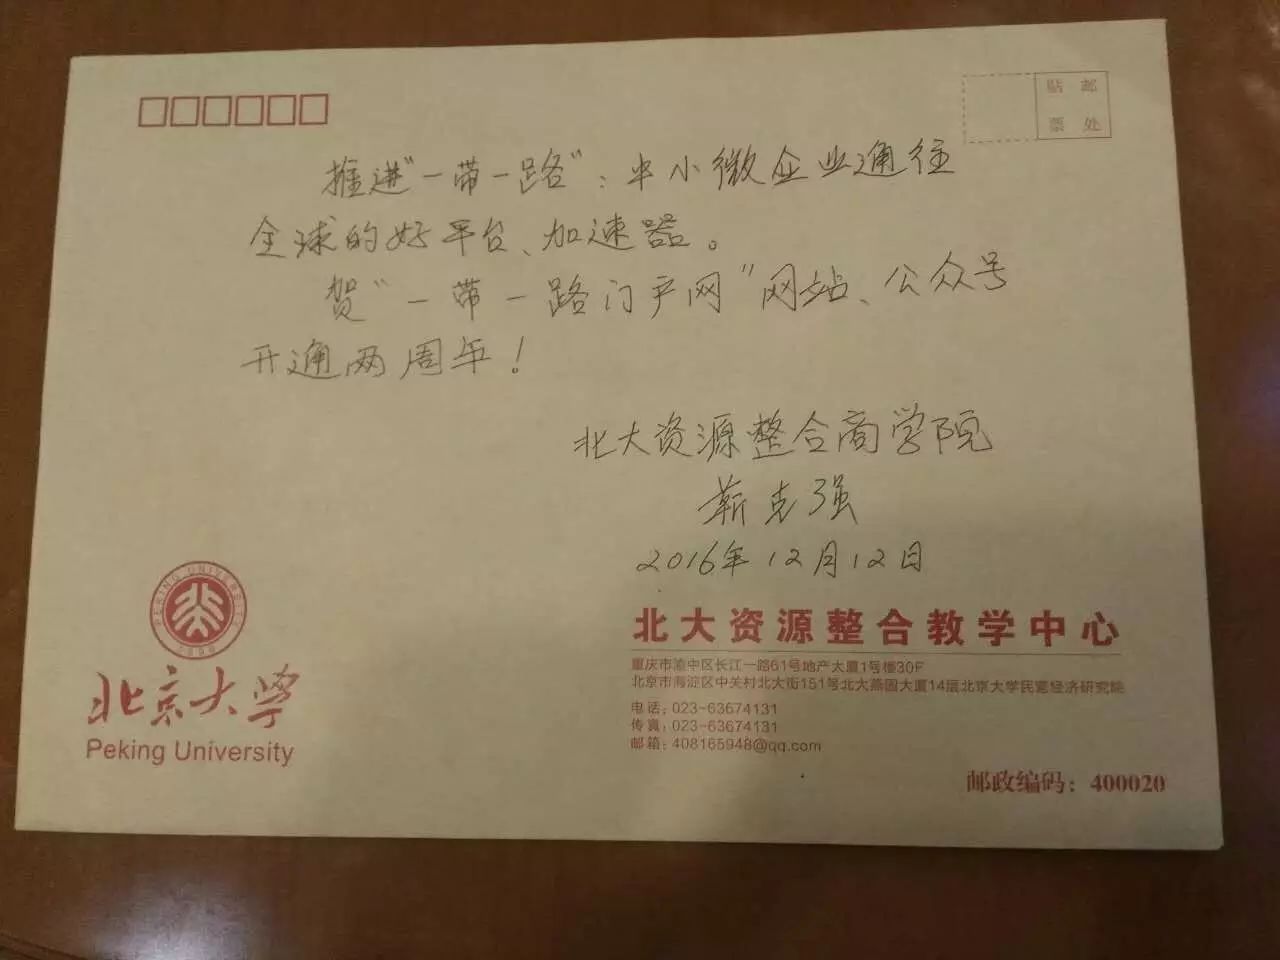 贴 邮
票 处
推进"一带一路"：中小微企业通往
全球的好平台、加速器。
贺"一带一路门户网"网站、公众号
开通两周年！
北大资源整合商学院
靳克强
2016年12月12日
PEKING UNIVERSITY
1898
北京大学
Peking University
北大资源整合教学中心
重庆市渝中区长江一路61号地产大厦1号楼30F
北京市海淀区中关村北大街151号北大燕园大厦14层北京大学民营经济研究院
电话：023-63674131
传真：023-63674131
邮箱：408165948@qq.com
邮政编码：400020